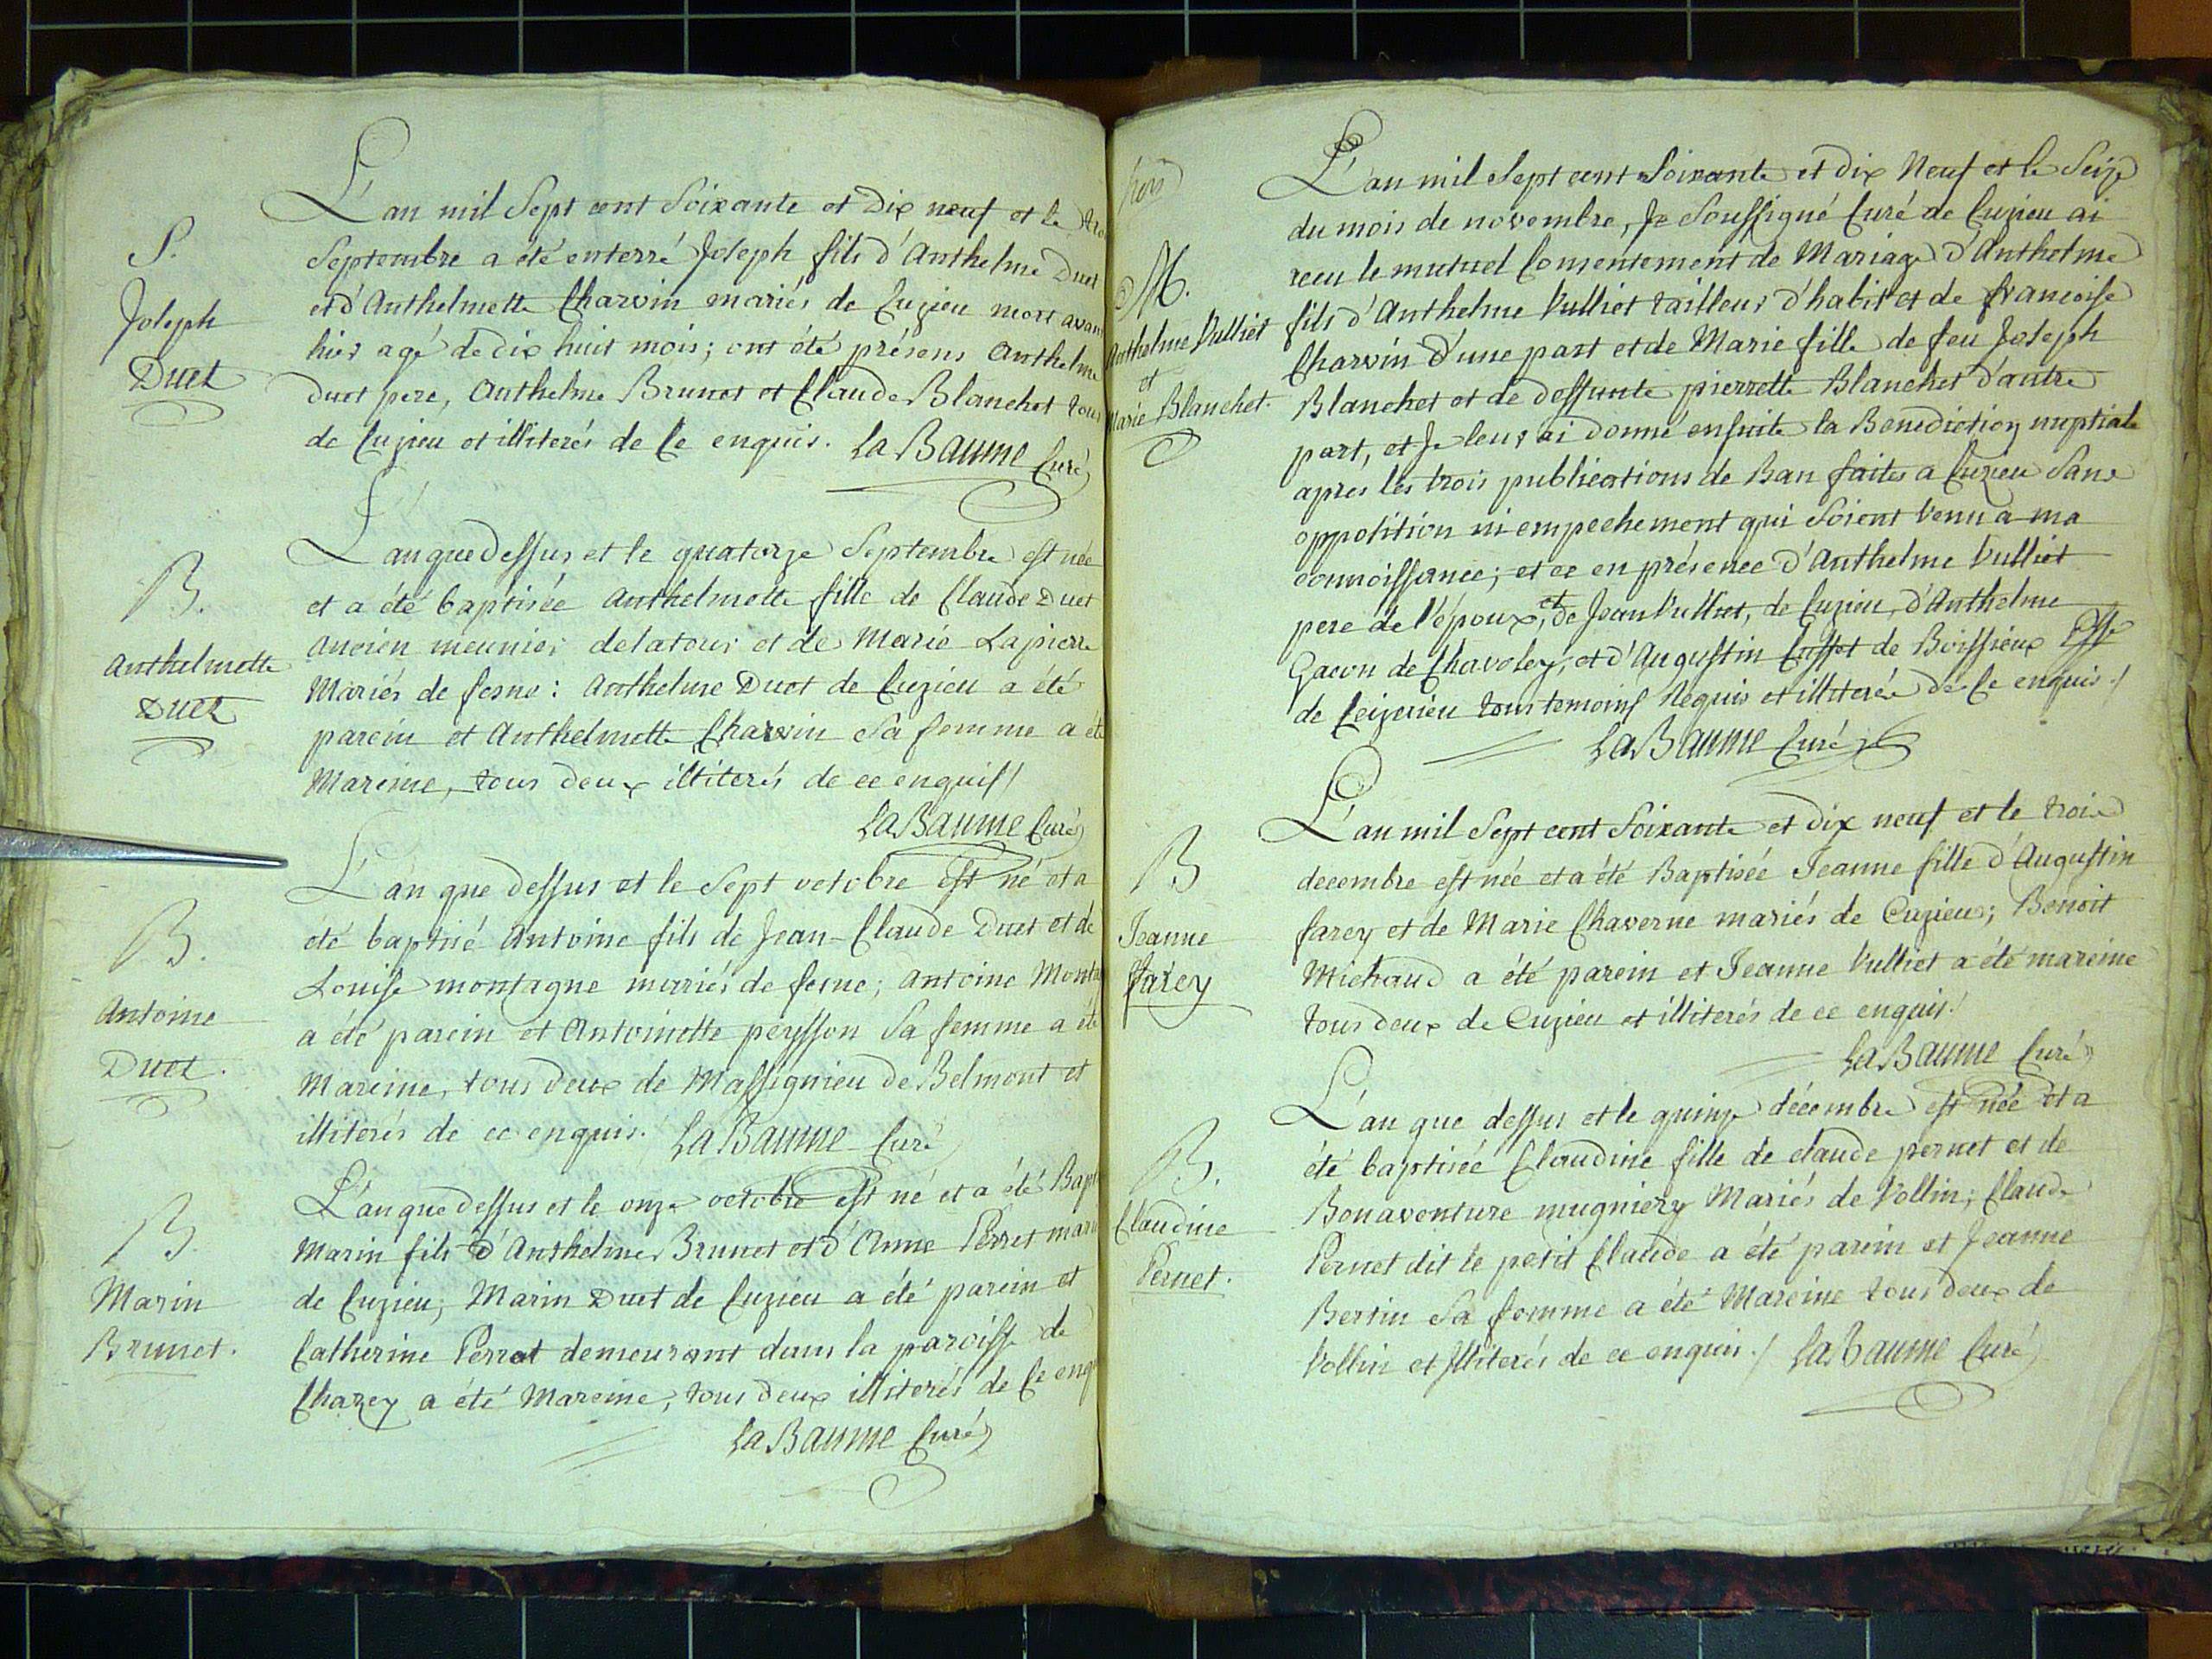 S.
Joseph
Duet
L'an mil Sept cent Soixante et Dix neuf et le
Septembre a été enterré Joseph fils d'Anthelme Duet
et d'Anthelmette Charvin mariés de Cuzieu mort avant
hier agé de dix huit mois; ont été présens Anthelme
Duet pere, Anthelme Brunet et Claude Blanchet tous
de Cuzieu et illiterés de Ce enquis. La Baume Curé
B.
Anthelmette
Duet
L'an que dessus et le quatorze Septembre est née
et a été baptisée Anthelmette fille de Claude Duet
Ancien meunier delatour et de Marie Lapierre
Mariés de fesne: Anthelme Duet de Cuzieu a été
parein et Anthelmette Charvin Sa femme a été
Mareine, tous deux illiterés de ce enquis/
La Baume Curé
B.
Antoine
Duet.
L'an que dessus et le Sept octobre est né et a
été baptisé Antoine fils de Jean-Claude Duet et de
Louise montagne mariés de fesne; Antoine Monta
a été parein et Antoinette peysson Sa femme a été
Mareine, tous deux de Massignieu de Belmont et
illiterés de ce enquis. La Baume Curé
B
Marin
Brunet.
L'an que dessus et le onze octobre est né et a été Bapt
Marin fils d'Anthelme Brunet et d'Anne Perret mari
de Cuzieu; Marin Duet de Cuzieu a été parein et
Catherine Perret demeurant dans la paroisse de
Chazey a été Mareine, tous deux illiterés de Ce enq
La Baume Curé
M.
Anthelme Vulliet
et
Marie Blanchet.
L'an mil Sept cent Soixante et dix Neuf et le Seize
du mois de novembre, Je Soussigné Curé de Cuzieu ai
recu le mutuel Consentement de Mariage d'Anthelme
fils d'Anthelme Vulliet tailleur d'habit et de francoise
Charvin d'une part et de Marie fille de feu Joseph
Blanchet et de deffunte pierrette Blanchet d'autre
part, et Je leur ai donné ensuite la Benediction nuptiale
apres les trois publications de Ban faites a Cuzieu Sans
oppolition ni empechement qui Soient Venu a ma
connoissance; et ce en présence d'Anthelme Vulliet
pere de l'époux, et de Jean Vulliet, de Cuzieu, d'Anthelme
Gacon de Chavoley, et d'Augustin Cusset de Boissieux
de Ceizerieu tous temoins Requis et illiterés de Ce enquis./
La Baume Curé
B
Jeanne
farey
L'an mil Sept cent Soixante et dix neuf et le trois
decembre est née et a été Baptisée Jeanne fille d'Augustin
farey et de Marie Chaverne mariés de Cuzieu; Benoit
Michaud a été parein et Jeanne Vulliet a été mareine
tous deux de Cuzieu et illiterés de ce enquis!
La Baume Curé
B.
Claudine
Pernet.
L'an que dessus et le quinze décembre est née et a
été baptisée Claudine fille de claude pernet et de
Bonaventure mugniery Mariés de Vollin; Claude
Pernet dit le petit Claude a été parein et Jeanne
Bertin Sa femme a été Mareine tous deux de
Vollin et Illiterés de ce enquis./ La Baume Curé